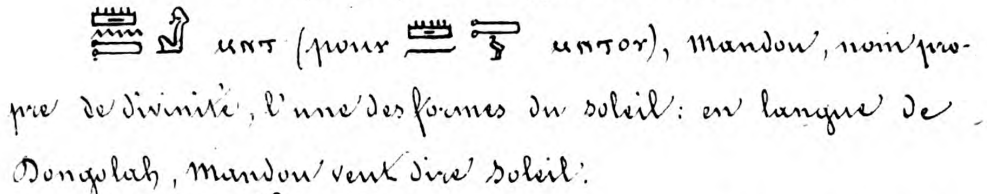 ⲙⲛⲧ (pour ⲙⲛⲧⲟⲩ), Mandou, nom pro-
pre de divinité, l'une des formes du soleil: en langue de
Dongolah, Mandou veut dire soleil.